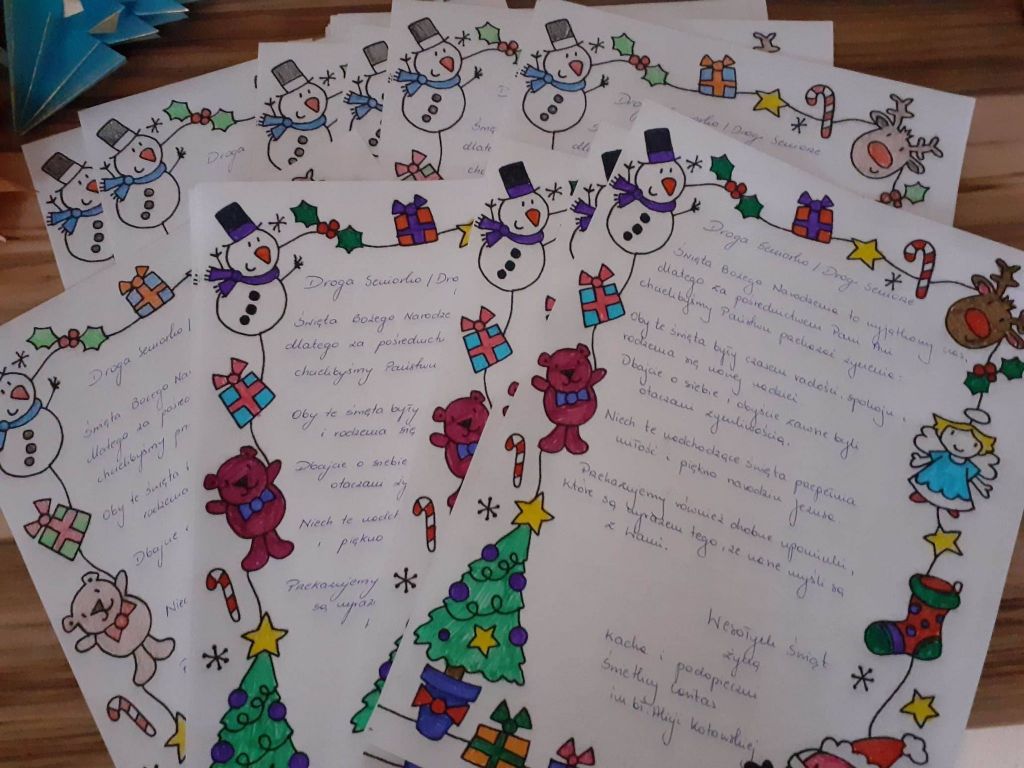 Droga Seniorko / Drogi Seniorze
Święta Bożego Narodzenia to wyjątkowy czas,
dlatego za pośrednictwem Pani Ani
chcielibyśmy Państwu przekazać życzenia:
Oby te święta były czasem radości, spokoju i
rodzenia się nowej nadziei
Dbajcie o siebie i abyście zawsze byli
otoczeni życzliwością.
Niech te nadchodzące święta przepełnia
miłość i piękno narodzin Jezusa.
Przekazujemy również drobne upominki,
które są wyrazem tego, że nasze myśli są
z Wami.
Wesołych Świąt
życzą
Kacha i podopieczni
Świetlicy Caritas
im bł. Matki Kotowskiej
Droga Seniorko / Dro
Święta Bożego Narodze
dlatego za pośrednich
chcielibyśmy Państwu
Oby te święta były
i rodzenia się
Dbajcie o siebie
otoczeni ży
Niech te nadch
i piękno
Przekazujemy
są wyraz
Droga Seniorko /
Święta Bożego Nar
dlatego za pośred
chcielibyśmy
Oby te święta
rodzenia
Dbajcie
Niec
Droga
Droga Seniorko / Drogi Seniorze